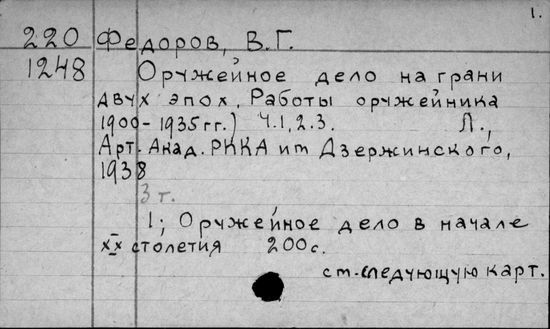 1.
220 Федоров, В.Г.
1248 Оружейное дело на грани
двух эпох, Работы оружейника
1900-1935гг.) Ч.1,2.3. Л.,
Арт. Акад. РККА им Дзержинского,
1938
3 т.
1; Оружейное дело в начале
XX столетия 200с.
см. следующую карт.